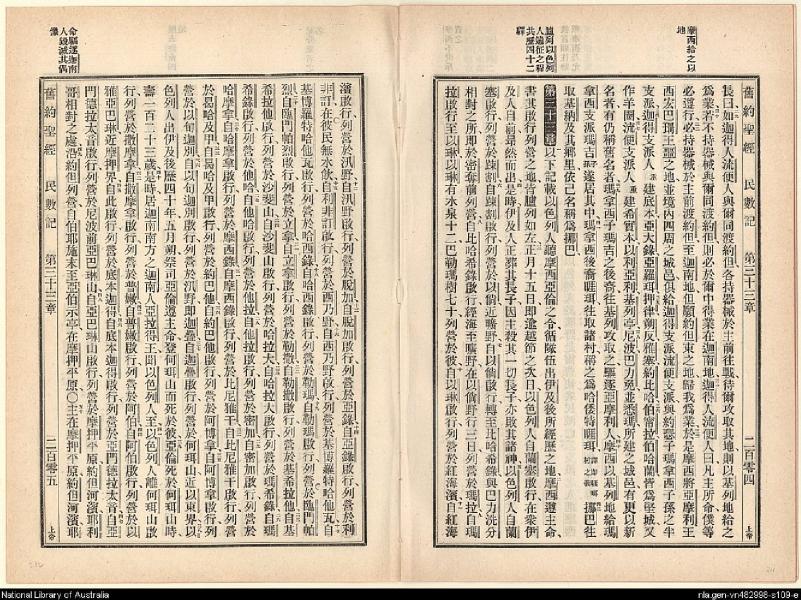 摩西給之以地
舊約聖經 民數記 第三十二章 二百零四 上帝
長曰如迦得人流便人與爾同渡約但各持器械於主前往戰待爾攻取其地則以基列地給之
爲業若不持器械與爾同渡約但則必於爾中得業在迦南地迦得人流便人曰凡主所命僕等
必遵行必持器械於主前渡約但至迦南地但願約但東之地歸我爲業於是摩西將亞摩利王
西宏巴珊王噩之地並境內四周之城邑俱給迦得支派流便支派與約瑟子瑪拿西子孫之半
支派迦得支派人重建底本亞大錄亞羅珥押律朔反雅塞約比哈伯甯拉伯哈蘭皆爲堅城又
作羊圈流便支派人重建希實本以利亞利基列亭尼波巴力免並悉瑪所建之城邑有更以新
名者有仍稱舊名者瑪拿西子瑪吉之後裔往基列攻取之驅逐亞摩利人摩西以基列地給瑪
拿西支派瑪吉裔遂居其中瑪拿西後裔睚珥往取諸村稱之爲哈倭特睚珥 挪巴往
取基納及其鄉里依己名稱爲挪巴
臚列以色列人遠征之程共歷四十二驛
第三十三章 以下記載以色列人聽摩西亞倫之令循隊伍出伊及後所經歷之地摩西遵主命
書其啟行列營之地臚列如左正月十五日即逾越節之次日以色列人自蘭塞啟行在衆伊
及人目前昂然而出是時伊及人正葬其長子因主殺其一切長子亦敗其諸神以色列人自蘭
塞啟行列營於疎割自疎割啟行列營於以倘近曠野自以倘啟行轉至比哈希錄與巴力洗分
相對之所於密奪前列營自比哈希錄啟行經海至曠野在以倘野行三日列營於瑪拉自瑪
拉啟行至以琳以琳有水泉十二巴勒瑪樹七十列營於彼自以琳啟行列營於紅海濱自紅海
濱啟行列營於汛野自汛野啟行列營於脫加自脫加啟行列營於亞錄自亞錄啟行列營於利
非訂在彼民無水飲自利非訂啟行列營於西乃野自西乃野啟行列營於基博羅特哈他瓦自
基博羅特哈他瓦啟行列營於哈西錄自哈西錄啟行列營於勒瑪自勒瑪啟行列營於臨門帕
烈自臨門帕烈啟行列營於立拿自立拿啟行列營於勒撒自勒撒啟行列營於基希拉他自基
希拉他啟行列營於沙斐山自沙斐山啟行列營於哈拉大自哈拉大啟行列營於瑪希錄自瑪
希錄啟行列營於他哈自他哈啟行列營於他拉自他拉啟行列營於密加自密加啟行列營於
哈摩拿自哈摩拿啟行列營於摩西錄自摩西錄啟行列營於比尼雅干自比尼雅干啟行列營
於曷哈及甲自曷哈及甲啟行列營於約巴他自約巴他啟行列營於阿博拿自阿博拿啟行列
營於以旬迦別自以旬迦別啟行列營於汛野即迦疊自迦疊啟行列營於何珥山近以東界以
色列人出伊及後歷四十年五月朔祭司亞倫遵主命登何珥山而死於彼亞倫死於何珥山時
壽一百二十三歲是時居迦南南方之迦南人亞拉得王聞以色列人至以色列人離何珥山啟
行列營於撒摩拿自撒摩拿啟行列營於普嫩自普嫩啟行列營於阿伯自阿伯啟行列營於以
雅亞巴琳近摩押界自此啟行列營於底本迦得自底本迦得啟行列營於亞門德拉太音自亞
門德拉太音啟行列營於尼波前亞巴琳山自亞巴琳山啟行列營於摩押平原約但河濱耶利
哥相對之處沿約但列營自伯耶施末至亞伯示亭在摩押平原○主在摩押平原約但河濱耶
命驅逐迦南人毀滅其偶像
舊約聖經 民數記 第三十三章 二百零五 上帝
National Library of Australia
nla.gen-vn482998-s109-e